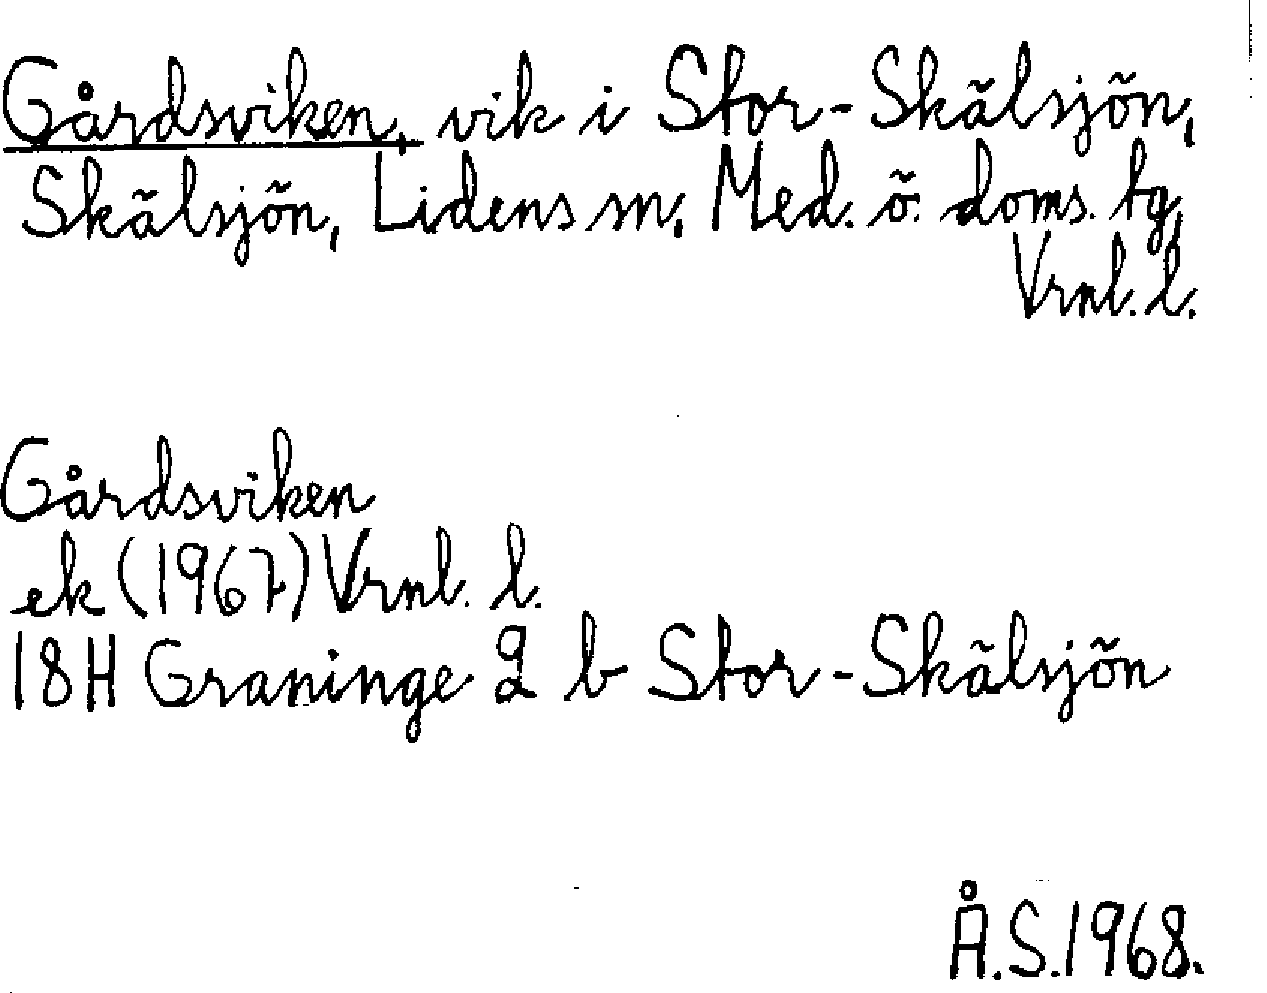 Gårdsviken, vik i Stor-Skälsjön,
Skälsjön, Lidens sn, Med. ö. doms. tg,
Vrnl. l.
Gårdsviken
ek (1967) Vrnl. l.
18H Graninge 2 b Stor-Skälsjön
Å.S.1968.